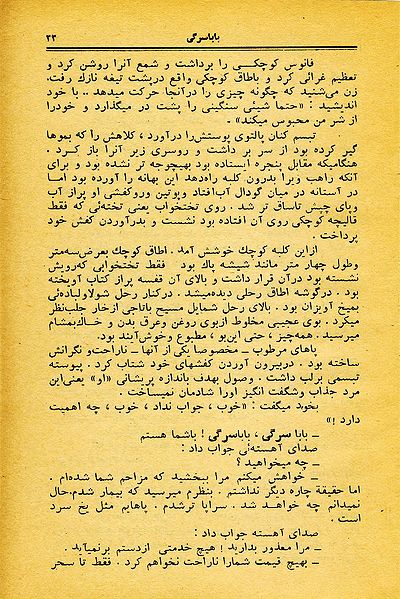 باباسرگی
۲۳
فانوس کوچکــی را برداشت و شمع آنرا روشن کرد و
تعظیم غرائی کرد و باطاق کوچکی واقع درپشت تیغه نازك رفت.
زن می‌شنید که چگونه چیزی را درآنجا حرکت میدهد .. با خود
اندیشید : «حتماً شیئی سنگینی را پشت در میگذارد و خودرا
از شر من محبوس میکند» .
تبسم کنان پالتوی پوستش‌را درآورد ، کلاهش را که بموها
گیر کرده بود از سر بر داشت و روسری زیر آنرا باز کــرد .
هنگامیکه مقابل پنجره ایستاده بود بهیچوجه تر نشده بود و برای
آنکه راهب ویرا بدرون کلبه راه‌دهد این بهانه را آورده بود امـا
در آستانه در میان گودال آب‌افتاد وپوتین وروکفشی او پراز آب
وپای چپش تاساق تر شد . روی تختخواب یعنی تخته‌ئی که فقط
قالیچه کوچکی روی آن افتاده بود نشست و بدرآوردن کفش خود
پرداخت .
ازاین کلبه کوچك خوشش آمد . اطاق کوچك بعرض‌سه‌متر
وطول چهار متر مانند شیشه پاك بود . فقط تختخوابی که‌رویش
نشسته بود درآن قرار داشت و بالای آن قفسه پراز کتاب آویخته
بود . درگوشه اطاق رحلی دیده‌میشد . درکنار رحل شولاولباده‌ئی
بمیخ آویزان بود . بالای رحل شمایل مسیح باتاجی ازخار جلب‌نظر
میکرد . بوی عجیبی مخلوط ازبوی روغن وعرق بدن و خــاك‌بمشام
میرسید . همه‌چیز ، حتی این‌بو ، مطبوع وخوش‌آیند بود.
پاهای مرطوب ـ مخصوصاً یکی از آنها ـ ناراحت‌و نگرانش
ساخته بود . دربیرون آوردن کفشهای خود شتاب کرد . پیوسته
تبسمی برلب داشت . وصول بهدف باندازه پریشانی «او» یعنی‌این
مرد جذاب وشگفت انگیز اورا شادمان نمیساخت .
بخود میگفت: «خوب ، جواب نداد ، خوب ، چه اهمیت
دارد !»
ـ بابا سرگی ، باباسرگی ! باشما هستم
صدای آهسته‌ئی جواب داد :
ـ چه میخواهید ؟
ـ خواهش میکنم مرا ببخشید که مزاحم شما شده‌ام .
اما حقیقة چاره دیگر نداشتم . بنظرم میرسید که بیمار شدم.حال
نمیدانم چه خواهــد شد . سراپا ترشدم . پاهایم مثل یخ سرد
است .
صدای آهسته جواب داد :
ـ مرا معذور بدارید ! هیچ خدمتی ازدستم برنمیآید .
ـ بهیچ قیمت شمارا ناراحت نخواهم کرد . فقط تا سحر